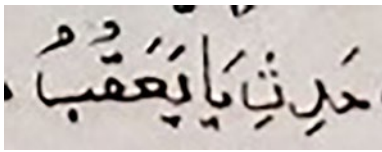 حَدِثِ يَا يَعَقُبُ